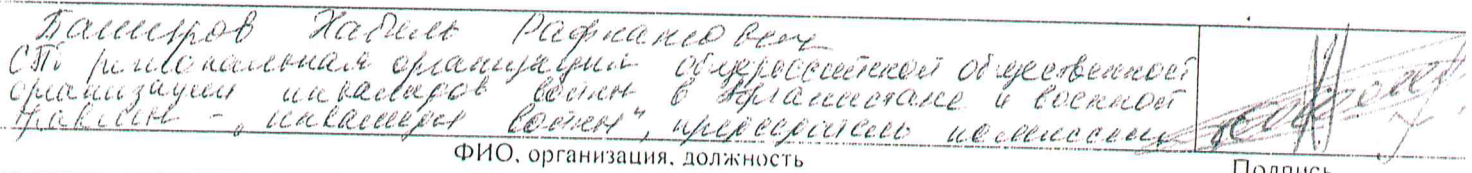 Баширов Набиль Рафкатович
СПб региональная организация общероссийской общественной
организации инвалидов войны в Афганистане и военной
травмы - "инвалиды войны", председатель комиссии
ФИО, организация, должность
Подпись